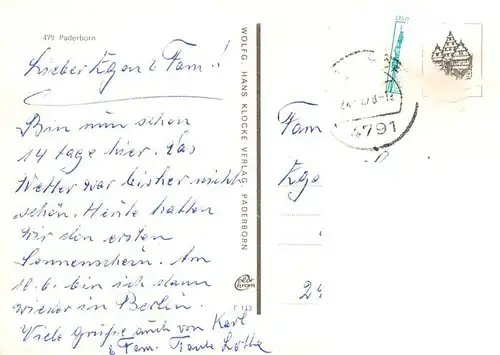 479 Paderborn
Lieber Egon & Fam.!
Bin nun schon
14 Tage hier. Das
Wetter war bisher nicht
schön. Heute hatten
wir den ersten
Sonnenschein. Am
18.6. bin ich dann
wieder in Berlin.
Viele Grüße auch von Karl
& Fam. Tante Lotte
WOLFG. HANS KLOCKE VERLAG, PADERBORN
F 143
4791
Fam
Ego
29